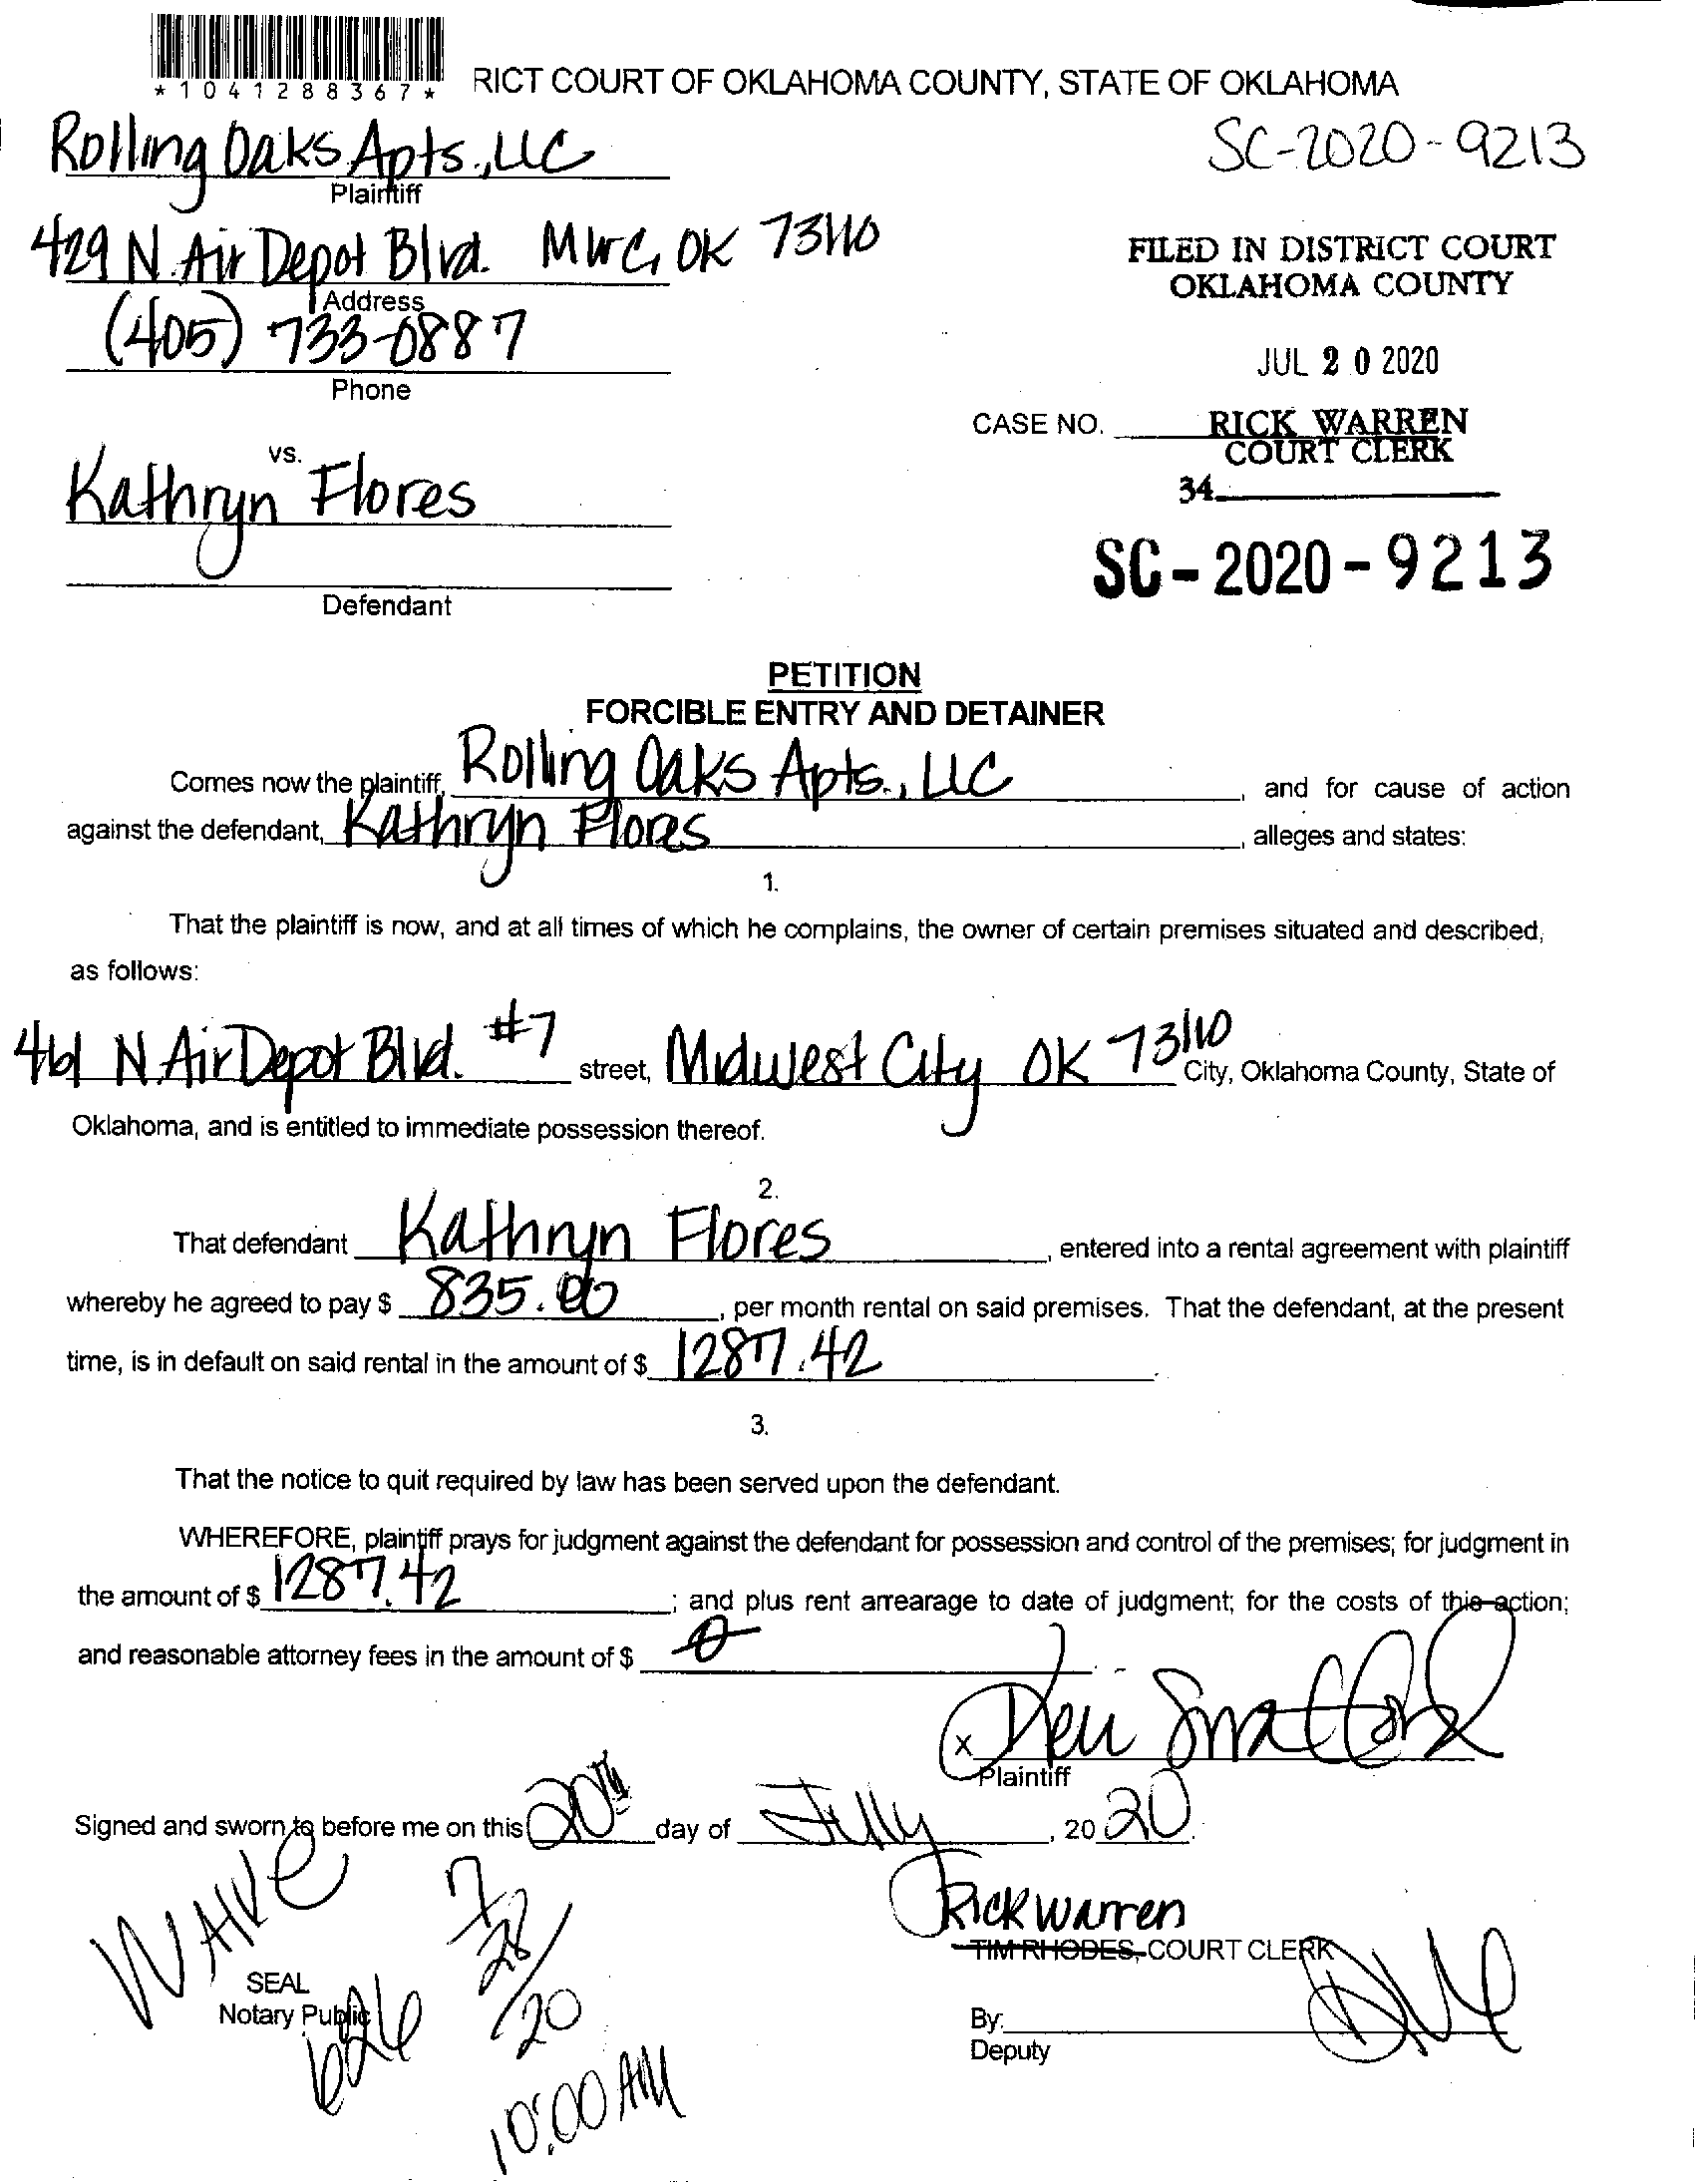 *1041288367*
RICT COURT OF OKLAHOMA COUNTY, STATE OF OKLAHOMA
Rolling Oaks Apts., LLC
SC-2020-9213
Plaintiff
429 N. Air Depot Blvd. MWC, OK 73110
FILED IN DISTRICT COURT
OKLAHOMA COUNTY
Address
(405) 733-0887
JUL 20 2020
Phone
CASE NO.
RICK WARREN
COURT CLERK
34
vs.
Kathryn Flores
SC-2020-9213
Defendant
PETITION
FORCIBLE ENTRY AND DETAINER
Comes now the plaintiff, Rolling Oaks Apts., LLC, and for cause of action
against the defendant, Kathryn Flores, alleges and states:
1.
That the plaintiff is now, and at all times of which he complains, the owner of certain premises situated and described,
as follows:
461 N. Air Depot Blvd. #7 street, Midwest City OK 73110 City, Oklahoma County, State of
Oklahoma, and is entitled to immediate possession thereof.
2.
That defendant Kathryn Flores, entered into a rental agreement with plaintiff
whereby he agreed to pay $ 835.00, per month rental on said premises. That the defendant, at the present
time, is in default on said rental in the amount of $ 1287.42.
3.
That the notice to quit required by law has been served upon the defendant.
WHEREFORE, plaintiff prays for judgment against the defendant for possession and control of the premises; for judgment in
the amount of $ 1287.42; and plus rent arrearage to date of judgment; for the costs of this action;
and reasonable attorney fees in the amount of $ 0
x
Plaintiff
Signed and sworn to before me on this 20th day of July, 2020.
WAIVE
7/28/20
10:00 AM
Rick Warren
TIM RHODES, COURT CLERK
SEAL
Notary Public
By:
Deputy